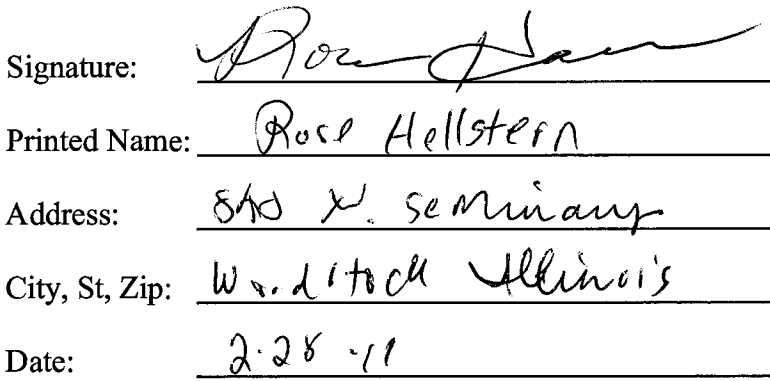 Signature:
Printed Name: Rose Hellstern
Address: N. Seminary
City, St, Zip: Woodstock Illinois
Date: 2-28-11